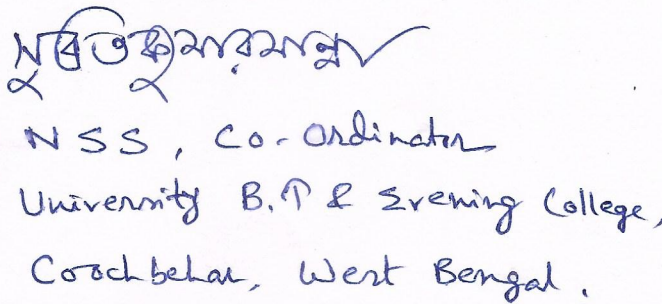 সুব্রতি কুমার মান্না
NSS, Co-Ordinator
University B.T & Evening College,
Coochbehar, West Bengal.